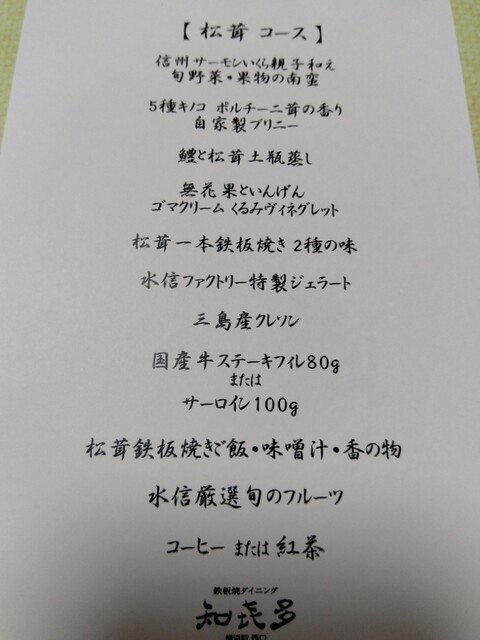 【 松茸 コース 】
信州サーモンいくら親子和え
旬野菜・果物の南蛮
5種キノコ ポルチーニ茸の香り
自家製ブリニー
鱧と松茸土瓶蒸し
無花果といんげん
ゴマクリーム くるみヴィネグレット
松茸一本鉄板焼き 2種の味
水信ファクトリー特製ジェラート
三島産クレソン
国産牛ステーキフィレ80g
または
サーロイン100g
松茸鉄板焼きご飯・味噌汁・香の物
水信厳選旬のフルーツ
コーヒー または 紅茶
鉄板焼ダイニング
知㐂多
横浜駅 西口